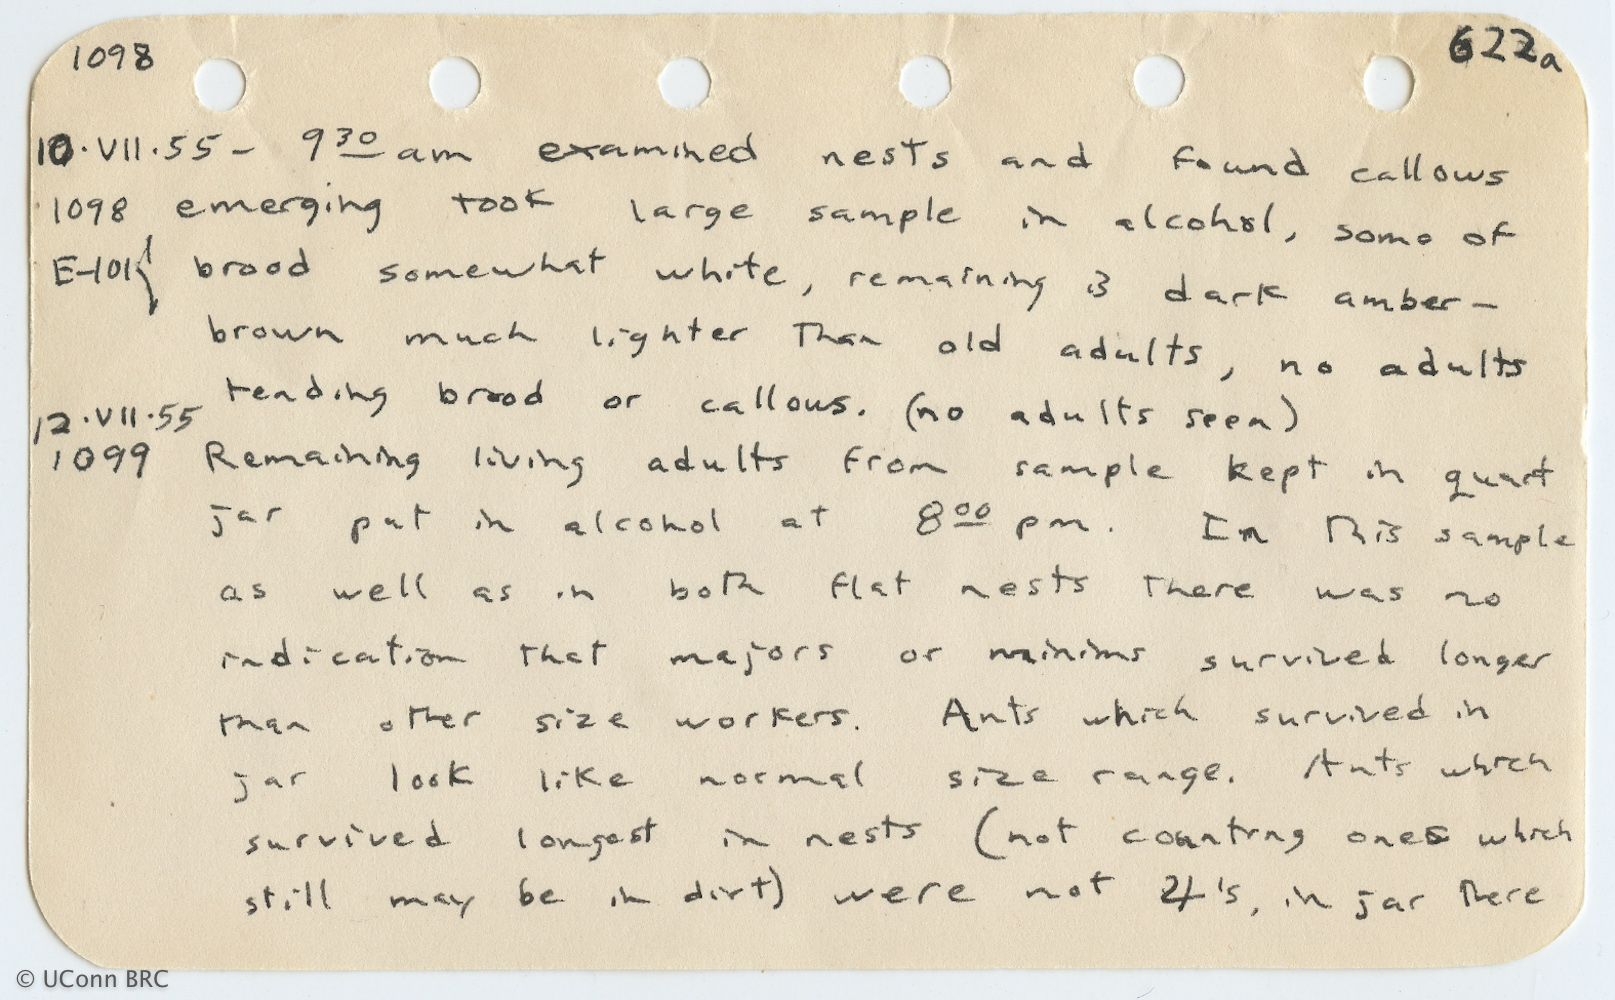 1098 622a
10·VII·55- 9 30 am examined nests and found callows
1098 emerging took large sample in alcohol, some of
E-101{ brood somewhat white, remaining is dark amber-
brown much lighter than old adults, no adults
tending brood or callows. (no adults seen)
12·VII·55
1099 Remaining living adults from sample kept in quart
jar put in alcohol at 8 00 pm. In this sample
as well as in both flat nests there was no
indication that majors or minims survived longer
than other size workers. Ants which survived in
jar look like normal size range. Ants which
survived longest in nests (not counting ones which
still may be in dirt) were not 24's, in jar there
© UConn BRC